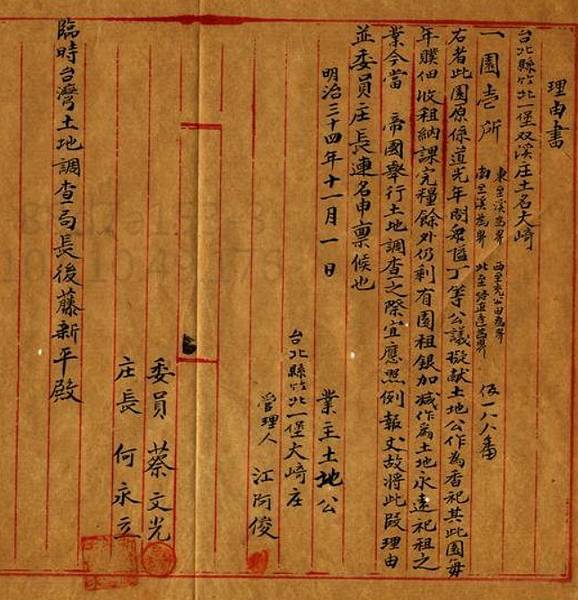 理由書
台北縣竹北一堡双溪庄土名大崎
一園壹所 東至溪為界 西至先公田為界 南至溪為界 北至路直透為界 仮一八八番
右者此園原係道光年間各隘丁等公議撥献土地公作為香祀其此園每
年贌佃收租納課完糧餘外仍剩有園租銀加减作為土地永遠祀租之
業今當 帝國舉行土地調查之際宜應照例報丈故將此段理由
並委員庄長連名申稟候也
明治三十四年十一月一日
業主土地公
台北縣竹北一堡大崎庄
管理人 江阿俊
委員 蔡文光
庄長 何永立
臨時台灣土地調查局長後藤新平殿